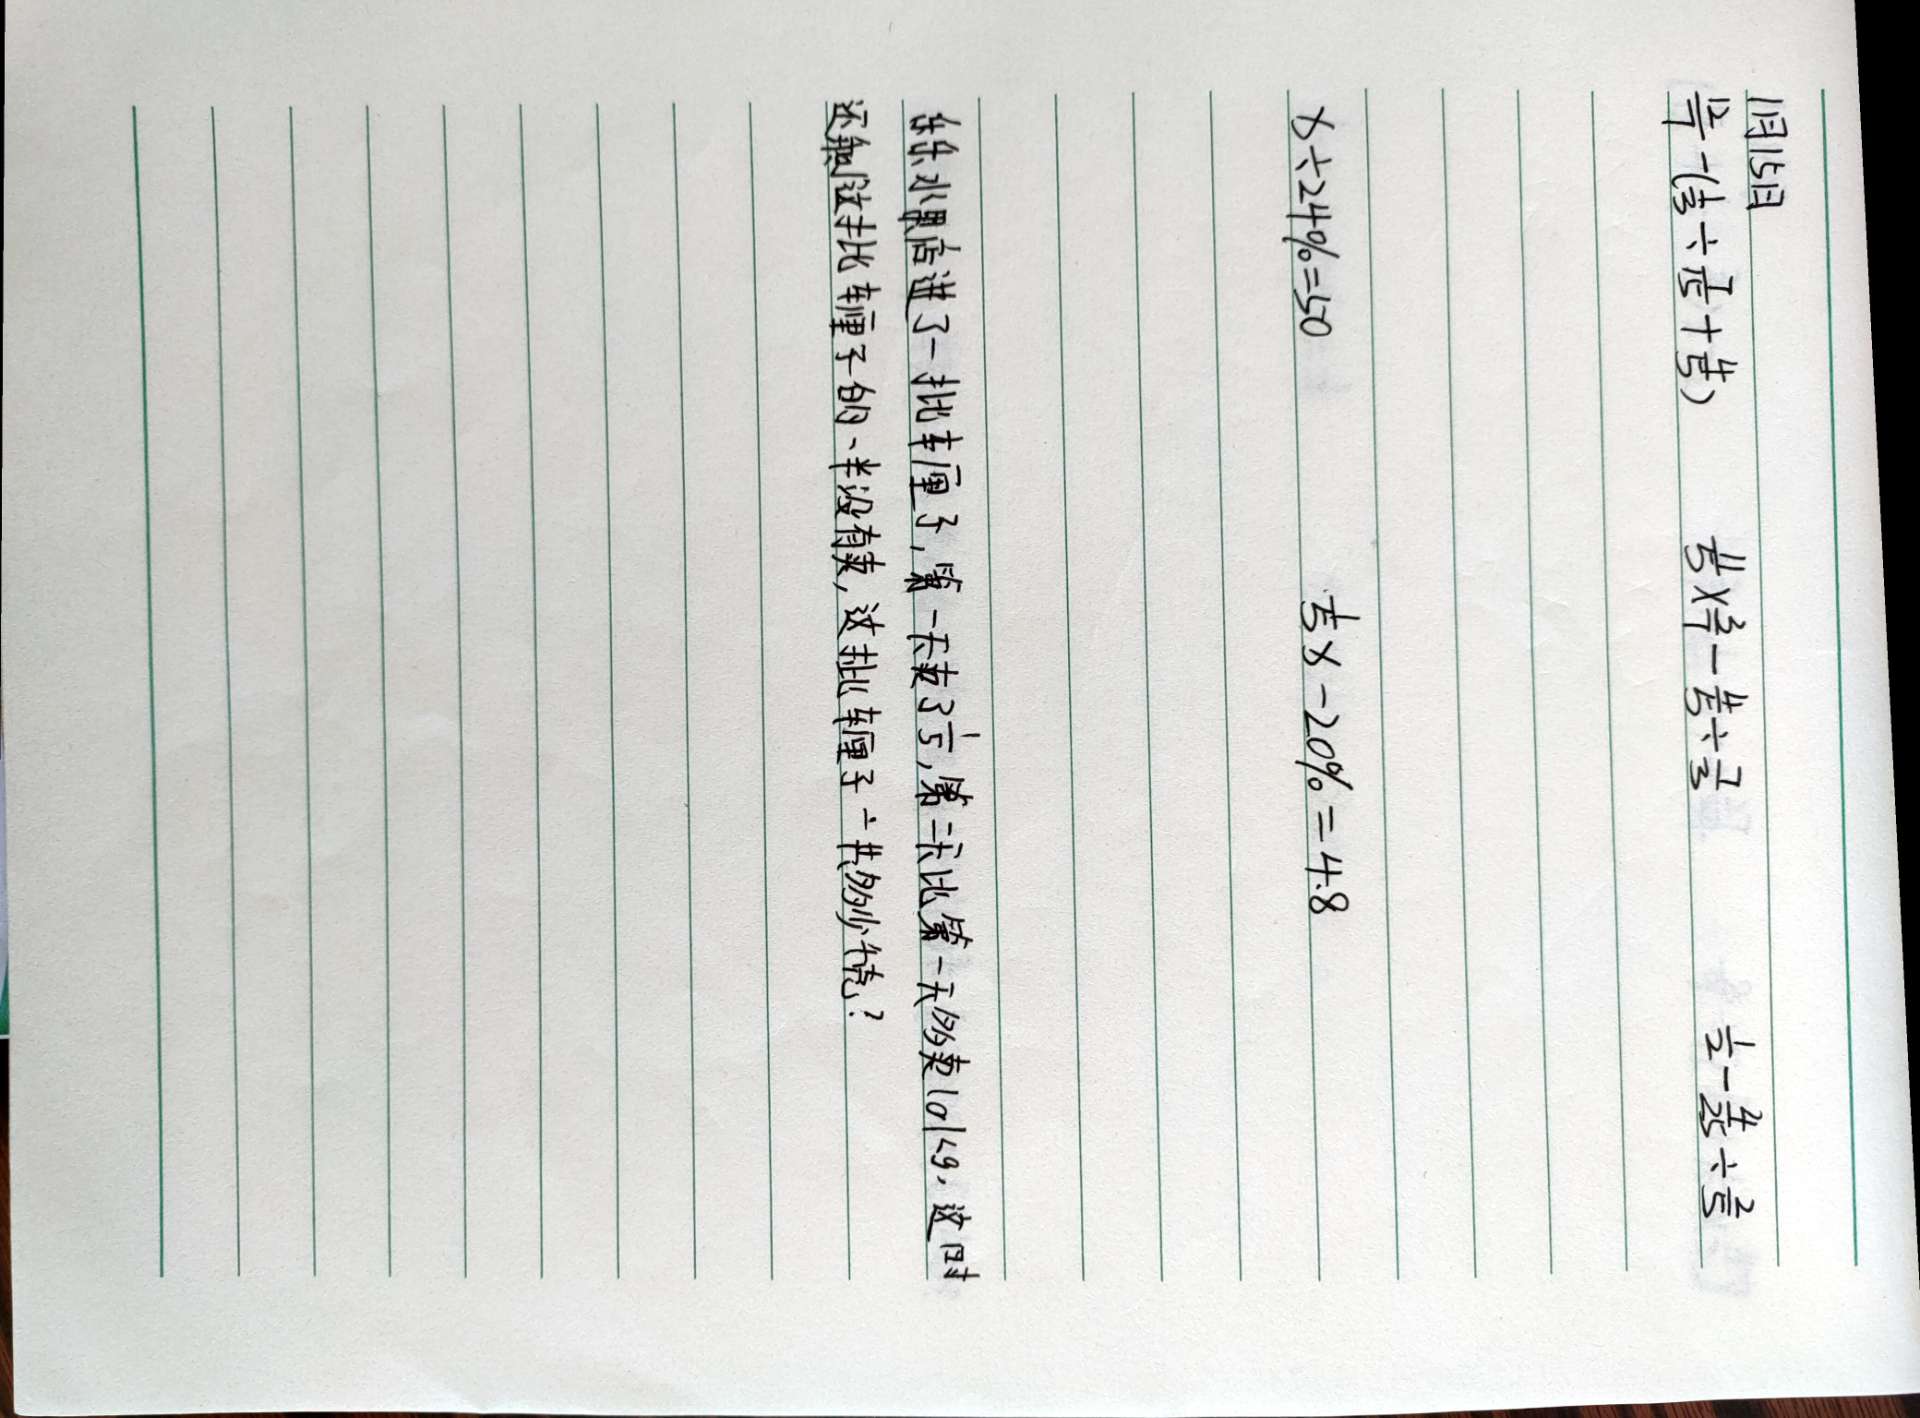 1月15日
12/7-(1/3÷7/15+4/5)    11/5×3/7-4/5÷7/3    1/2-4/25÷2/5
x÷24%=50    1/5x-20%=4.8
乐乐水果店进了一批车厘子,第一天卖了1/5,第二天比第一天多卖10kg,这时
还剩这批车厘子的一半没有卖,这批车厘子一共多少千克?